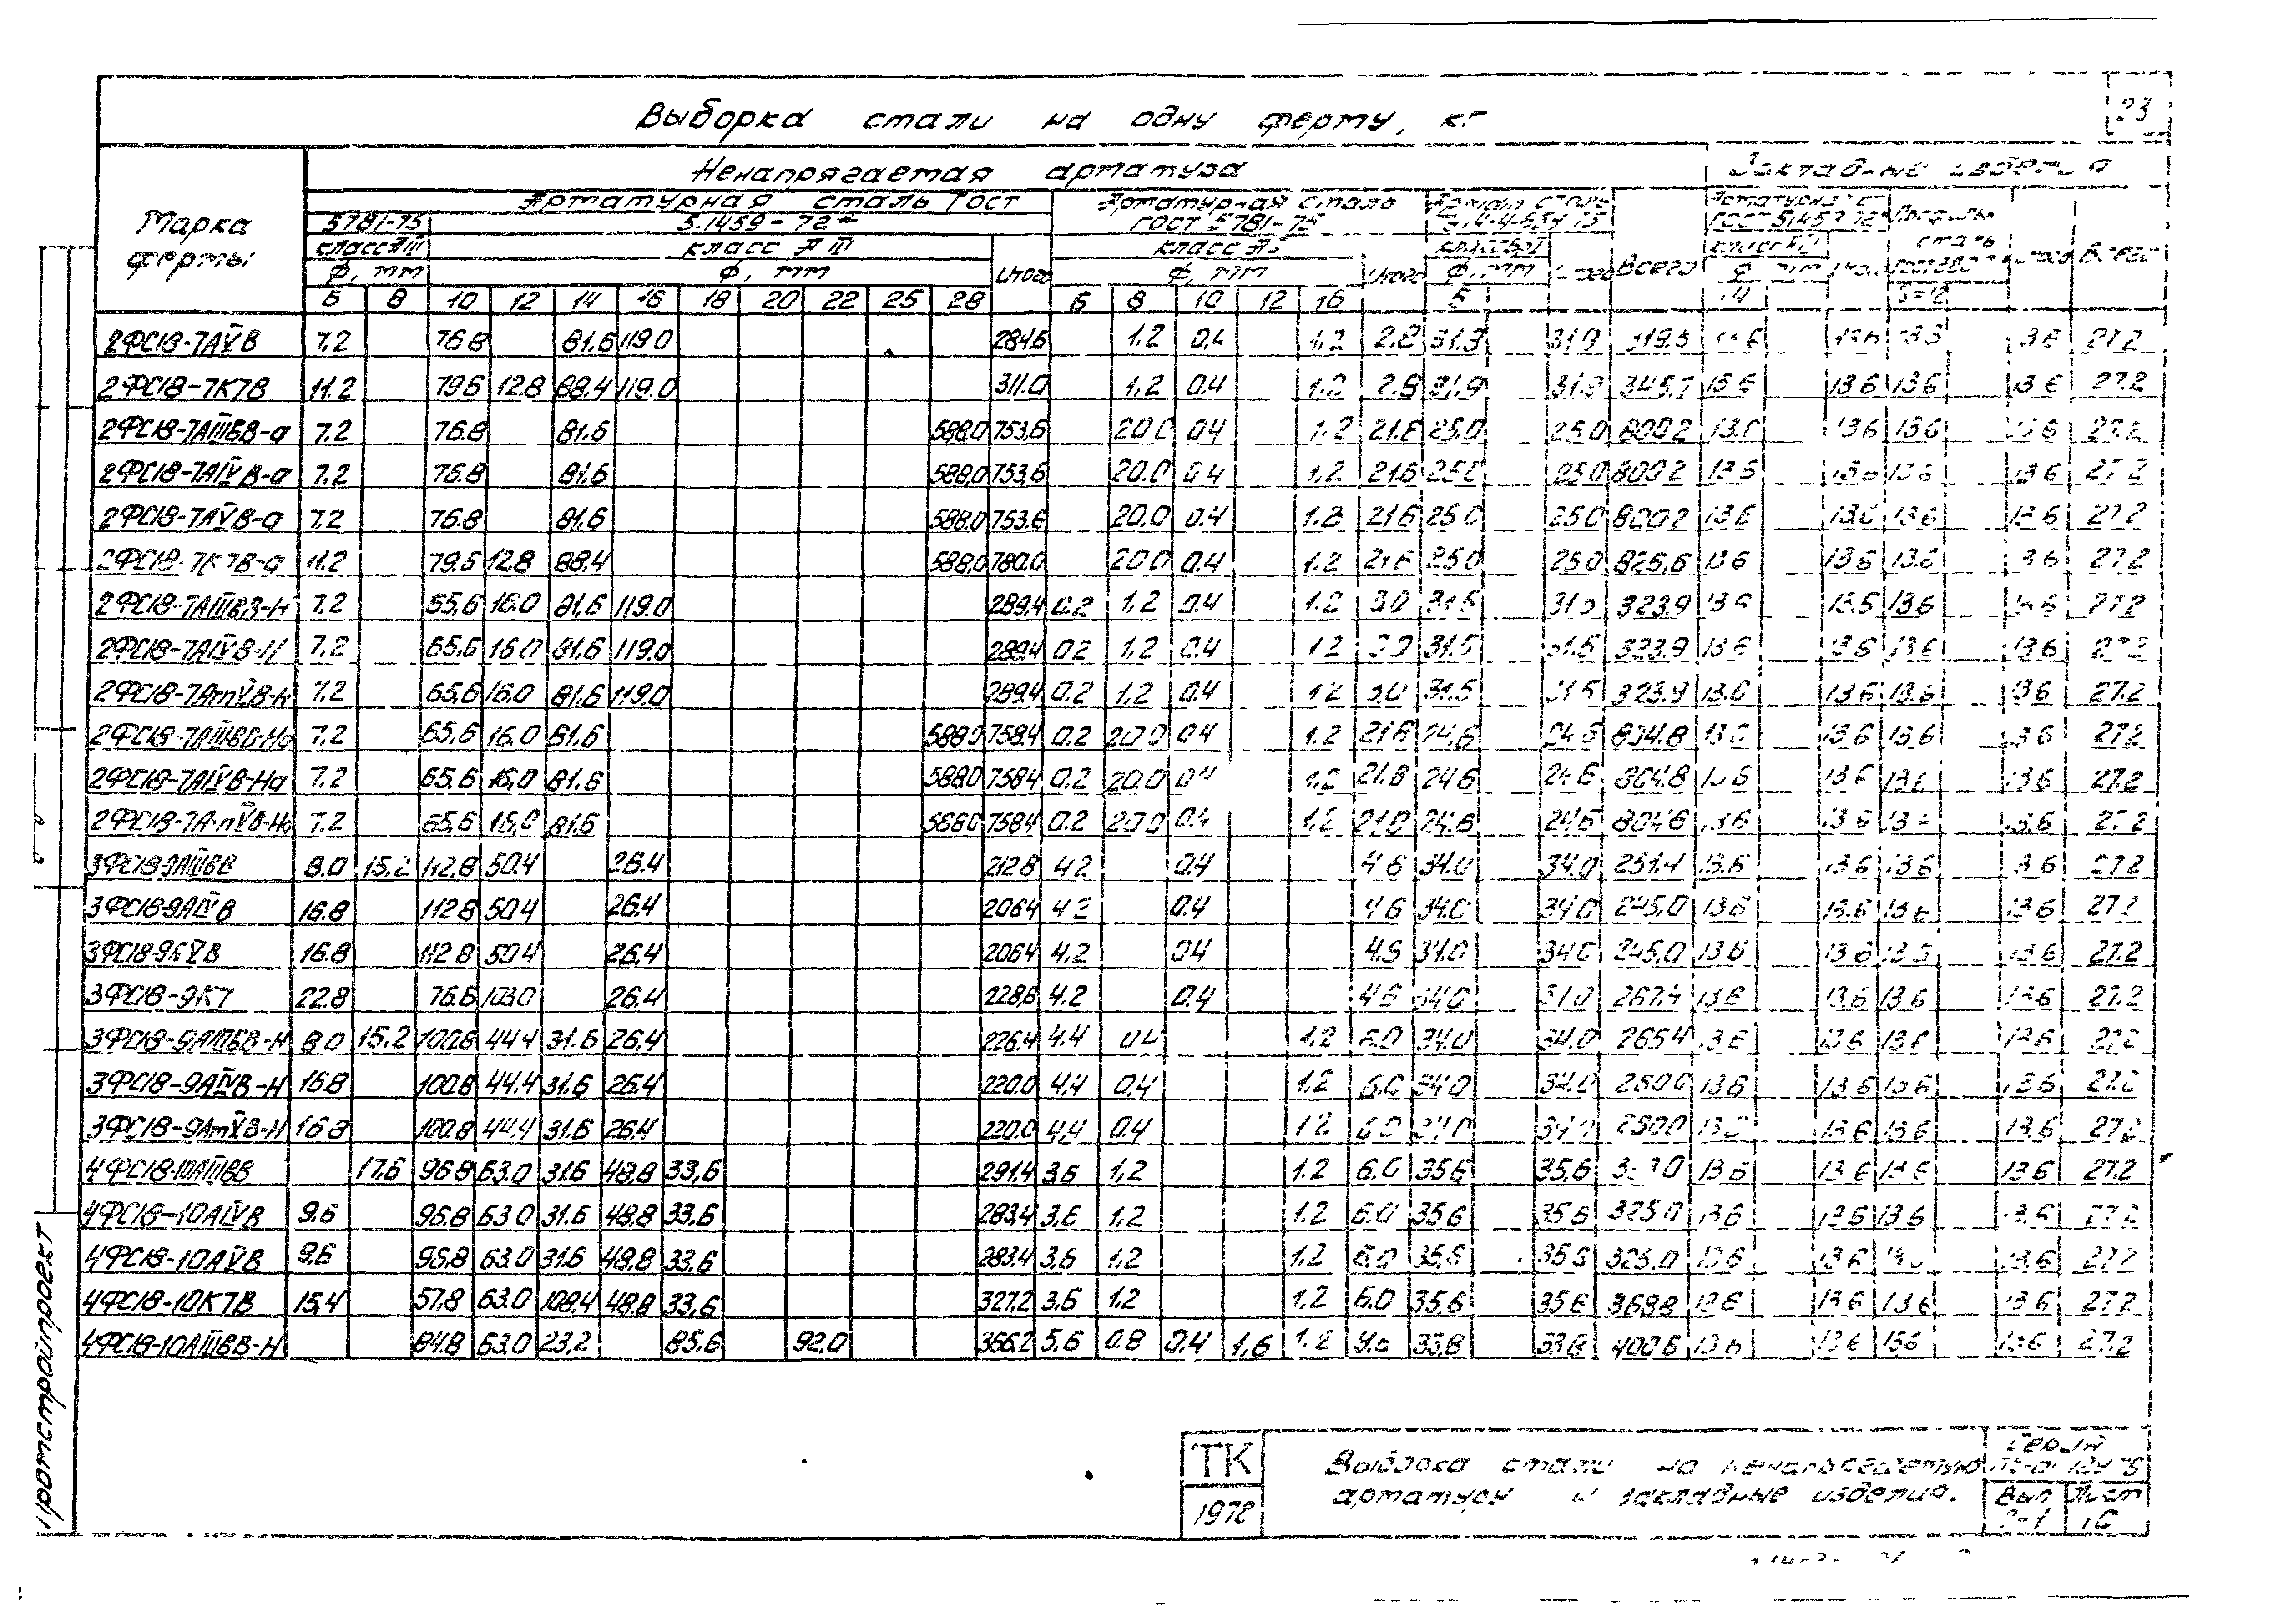 23
Выборка стали на одну ферму, кг
Марка фермы
Ненапрягаемая арматура
Арматурная сталь ГОСТ
Арматурная сталь ГОСТ 5781-75
5781-75 5.1459-72*
класс АIII класс А III Итого
ф, мм ф, мм ф, мм Итого ф, мм Всего
6 8 10 12 14 16 18 20 22 25 28 6 8 10 12 16 5 14
2ФС18-7АVВ 7.2 76.8 81.6 119.0 284.6 1.2 0.4 1.2 2.8 31.9 31.9 319.3 27.2
2ФС18-7К7В 11.2 79.6 12.8 88.4 119.0 311.0 1.2 0.4 1.2 2.8 31.9 31.9 345.7 13.6 13.6 13.6 13.6 27.2
2ФС18-7АIIIвВ-а 7.2 76.8 81.6 588.0 753.6 20.0 0.4 1.2 21.6 25.0 25.0 800.2 13.6 13.6 13.6 13.6 27.2
2ФС18-7АIVВ-а 7.2 76.8 81.6 588.0 753.6 20.0 0.4 1.2 21.6 25.0 25.0 800.2 13.6 13.6 13.6 13.6 27.2
2ФС18-7АVВ-а 7.2 76.8 81.6 588.0 753.6 20.0 0.4 1.2 21.6 25.0 25.0 800.2 13.6 13.6 13.6 13.6 27.2
2ФС18-7К7В-а 11.2 79.6 12.8 88.4 588.0 780.0 20.0 0.4 1.2 21.6 25.0 25.0 826.6 13.6 13.6 13.6 13.6 27.2
2ФС18-7АIIIвВ-Н 7.2 65.6 16.0 81.6 119.0 289.4 0.2 1.2 0.4 1.2 3.0 31.5 31.5 323.9 13.6 13.6 13.6 13.6 27.2
2ФС18-7АIVВ-Н 7.2 65.6 16.0 81.6 119.0 289.4 0.2 1.2 0.4 1.2 3.0 31.5 31.5 323.9 13.6 13.6 13.6 13.6 27.2
2ФС18-7АтVВ-Н 7.2 65.6 16.0 81.6 119.0 289.4 0.2 1.2 0.4 1.2 3.0 31.5 31.5 323.9 13.6 13.6 13.6 13.6 27.2
2ФС18-7АIIIвВ-На 7.2 65.6 16.0 81.6 588.0 758.4 0.2 20.0 0.4 1.2 21.8 24.6 24.6 804.8 13.6 13.6 13.6 13.6 27.2
2ФС18-7АIVВ-На 7.2 65.6 16.0 81.6 588.0 758.4 0.2 20.0 0.4 1.2 21.8 24.6 24.6 804.8 13.6 13.6 13.6 13.6 27.2
2ФС18-7АтVВ-На 7.2 65.6 16.0 81.6 588.0 758.4 0.2 20.0 0.4 1.2 21.8 24.6 24.6 804.8 13.6 13.6 13.6 13.6 27.2
3ФС18-9АIIIвВ 8.0 15.2 112.8 50.4 26.4 212.8 4.2 0.4 4.6 34.0 34.0 251.4 13.6 13.6 13.6 13.6 27.2
3ФС18-9АIVВ 16.8 112.8 50.4 26.4 206.4 4.2 0.4 4.6 34.0 34.0 245.0 13.6 13.6 13.6 13.6 27.2
3ФС18-9АVВ 16.8 112.8 50.4 26.4 206.4 4.2 0.4 4.6 34.0 34.0 245.0 13.6 13.6 13.6 13.6 27.2
3ФС18-9К7 22.8 76.6 103.0 26.4 228.8 4.2 0.4 4.6 34.0 34.0 267.4 13.6 13.6 13.6 13.6 27.2
3ФС18-9АIIIвВ-Н 8.0 15.2 100.8 44.4 31.6 26.4 226.4 4.4 0.4 1.2 6.0 34.0 34.0 266.4 13.6 13.6 13.6 13.6 27.2
3ФС18-9АIVВ-Н 16.8 100.8 44.4 31.6 26.4 220.0 4.4 0.4 1.2 6.0 34.0 34.0 260.0 13.6 13.6 13.6 13.6 27.2
3ФС18-9АтVВ-Н 16.8 100.8 44.4 31.6 26.4 220.0 4.4 0.4 1.2 6.0 34.0 34.0 260.0 13.6 13.6 13.6 13.6 27.2
4ФС18-10АIIIвВ 17.6 96.8 63.0 31.6 48.8 33.6 291.4 3.6 1.2 1.2 6.0 35.6 35.6 13.6 13.6 13.6 13.6 27.2
4ФС18-10АIVВ 9.6 96.8 63.0 31.6 48.8 33.6 283.4 3.6 1.2 1.2 6.0 35.6 35.6 325.0 13.6 13.6 13.6 13.6 27.2
4ФС18-10АVВ 9.6 96.8 63.0 31.6 48.8 33.6 283.4 3.6 1.2 1.2 6.0 35.6 35.6 325.0 13.6 13.6 13.6 27.2
4ФС18-10К7В 15.4 57.8 63.0 108.4 48.8 33.6 327.2 3.6 1.2 1.2 6.0 35.6 35.6 368.8 13.6 13.6 13.6 13.6 27.2
4ФС18-10АIIIвВ-Н 84.8 63.0 23.2 85.6 92.0 366.2 5.6 0.8 0.4 1.6 1.2 9.6 33.8 33.8 400.6 13.6 13.6 13.6 13.6 27.2
Промстройпроект
ТК
1978
Выборка стали на ненапрягаемую
арматуру и закладные изделия.
Серия
Вып Лист